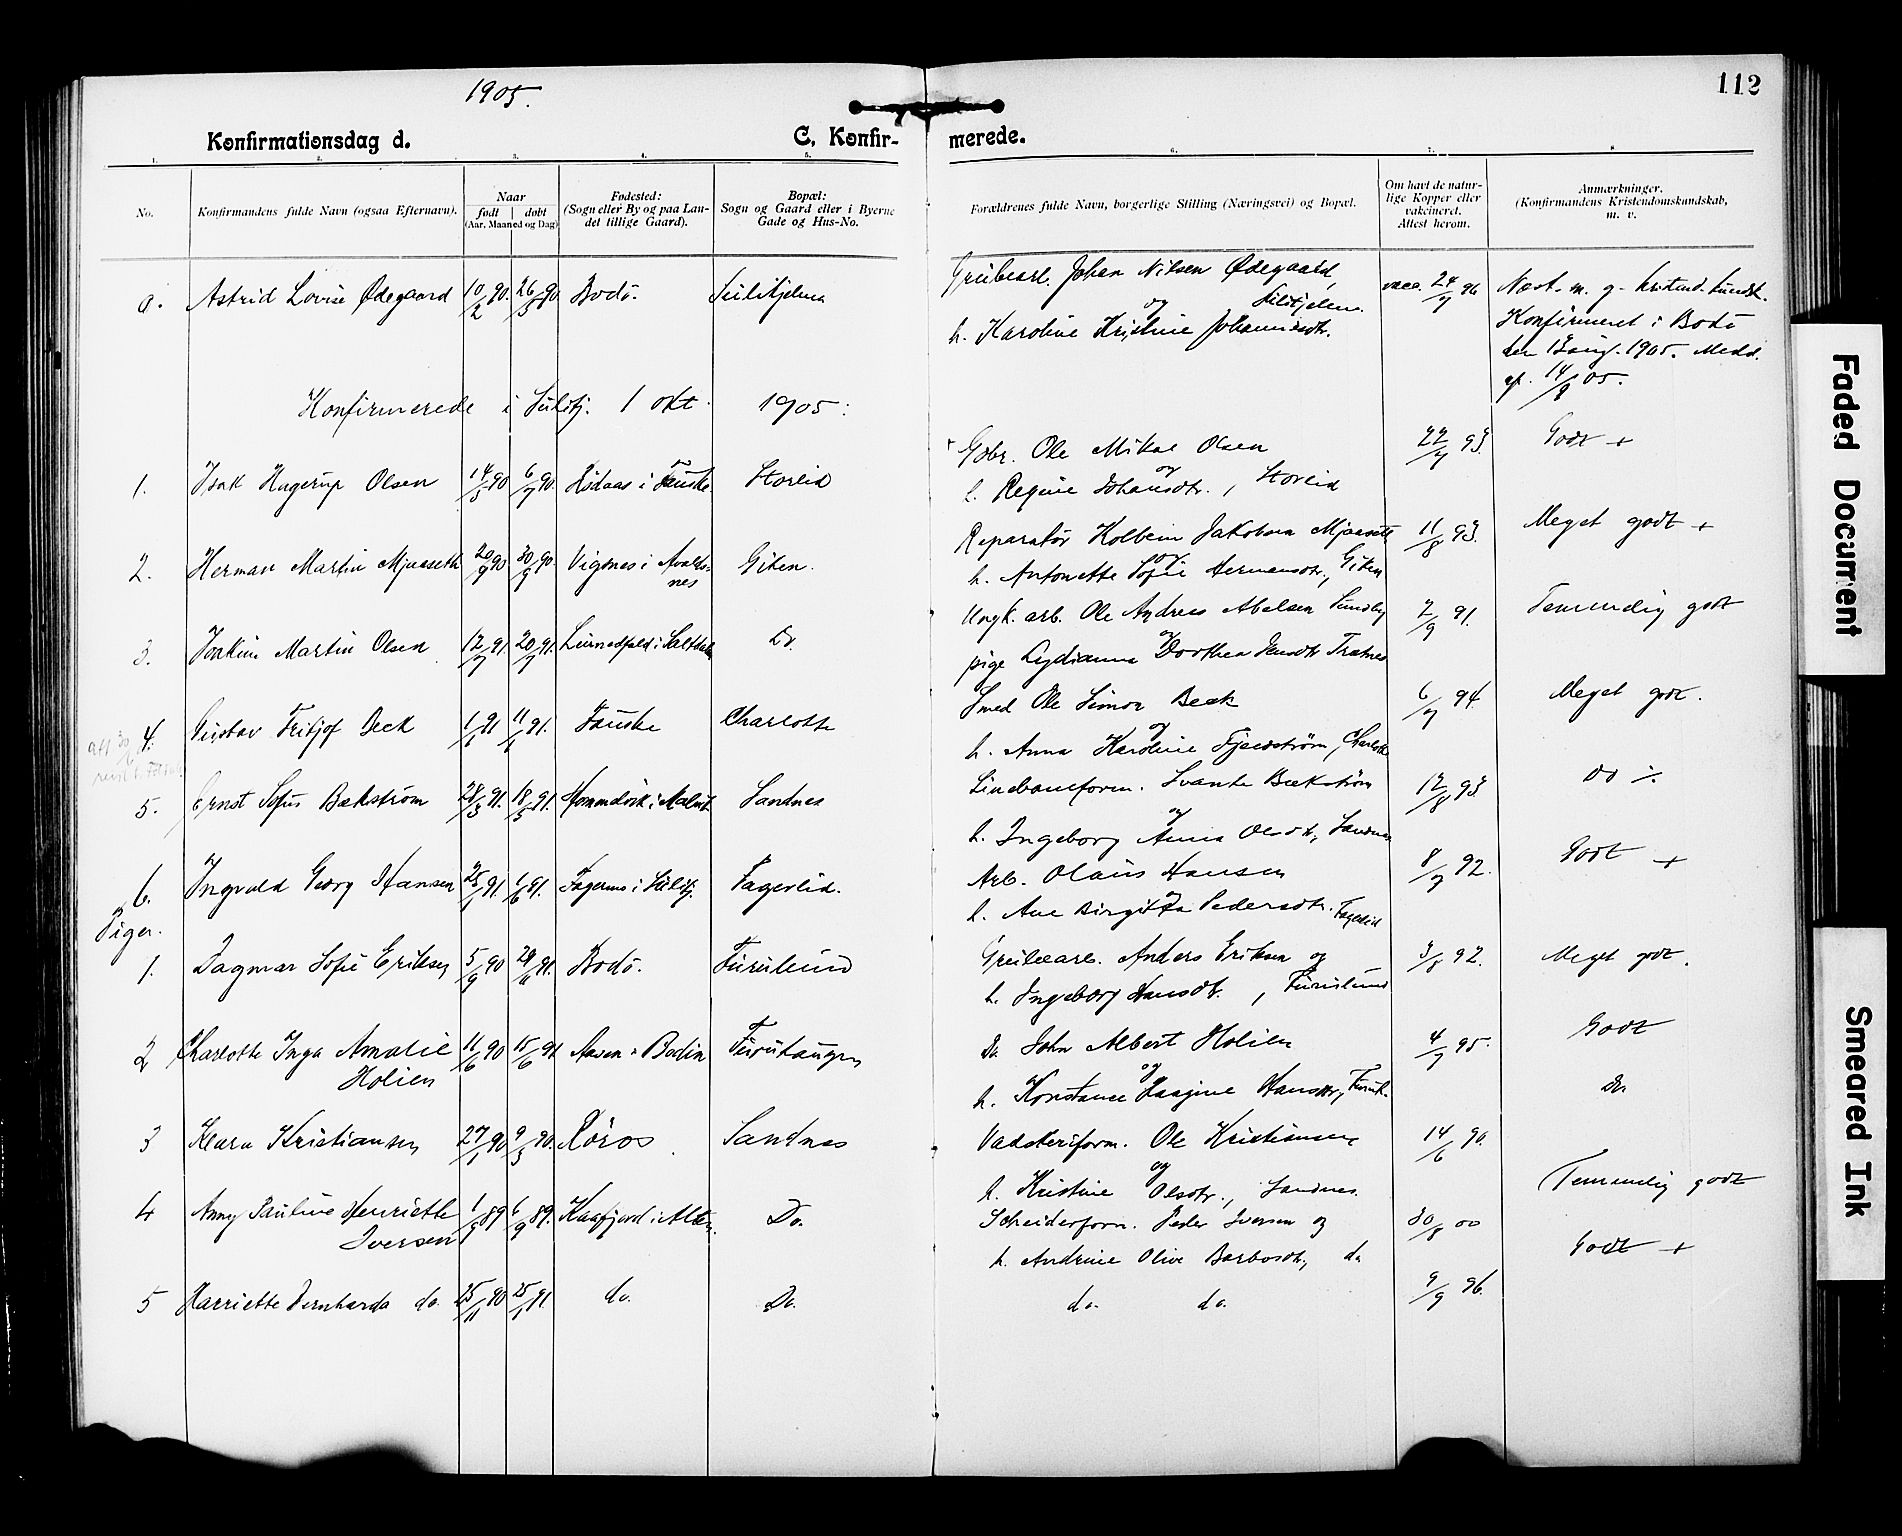 1905.
112
Konfirmationsdag d.
C. Konfir-
merede.
1. 2. 3. 4. 5. 6. 7. 8
No.
Konfirmandens fulde Navn (ogsaa Efternavn).
Naar
født | døbt
(Aar, Maaned og Dag)
Fødested:
(Sogn eller By og paa Lan-
det tillige Gaard).
Bopæl:
Sogn og Gaard eller i Byerne
Gade og Hus-No.
Forældrenes fulde Navn, borgerlige Stilling (Næringsvei) og Bopæl.
Om havt de natur-
lige Kopper eller
vakcineret.
Attest herom.
Anmærkninger.
(Konfirmandens Kristendomskundskab,
m. v.
a. Astrid Lovise Ødegaard 10/2 90. 26/5 90. Bodø. Sulitjelma
Grubearb. Johan Nilsen Ødegaard,
og Sulitjelma
h. Karoline Kristine Johannesdtr.
vacc. 24/9 96
Næst. m. g. kristend. kundsk.
Konfirmeret i Bodø
den 13 aug. 1905. Medd.
af. 14/8 05.
Konfirmerede i Sulitj. 1 okt. 1905:
1. Isak Hagerup Olsen 14/5 90 6/7 90. i Fauske. Storlid
Gbr. Ole Mikal Olsen
og
h. Regine Johansdtr., Storlid
22/7 93. Godt +
2. Herman Martin Mjaaseth 20/9 90 30/9 90. Vigsnes i Avalds-
nes
Giken.
Reparatør Kolbein Jakobsen Mjaaseth
og
h. Antonette Sofie Hermansdtr., Giken
11/8 93. Meget godt +
3. Joakim Martin Olsen 12/7 91. 20/7 91. i Saltdalen Do.
Ungk. arb. Ole Andreas Abelsen Sundby
og
pige Lydianna Dorthea Jensdtr
7/9 91. Temmelig godt
4. Gustav Fritjof Beck 1/1 91 11/1 91. Fauske Charlotte
Smed Ole Simon Beck
og
h. Anna Karoline Fjeldstrøm, Charlotte
6/7 94. Meget godt.
5. Ernst Sofus Bækstrøm 28/3 91. 18/5 91. Sandnes
Linebaneform. Svante Bækstrøm
og
h. Ingeborg Anna Olsdtr., Sandnes
12/8 93. do ÷
6. Ingvald Georg Hansen 25/1 91. 1/6 91. Fagermo i Sulitj. Fagerlid.
Arb. Olaus Hansen
h. Ane Birgitta Pedersdtr. Fagerlid
8/7 92. Godt +
Piger.
1. Dagmar Sofie Eriksen 5/9 90 Bodø. Furulund
Grubearb. Anders Eriksen og
h. Ingeborg Hansdtr., Furulund
3/8 92. Meget godt.
2 Charlotte Inga Amalie
Holien
11/6 90 15/6 91 Aasen i Bodin Furuhaugen
Do John Albert Holien
og
h. Konstance Hansdtr., Furuh.
4/7 95. Godt
3 Klara Kristiansen 27/1 90 9/3 90. Røros Sandnes
Vaskeriform. Ole Kristiansen
og
h. Kristine Olsdtr., Sandnes.
14/6 90. Do
4 Anny Pauline Henriette
Iversen
1/5 89 6/9 89. Kaafjord i Alten. Do.
Scheiderform. Peder Iversen og
h. Andrine Olive Barbosdtr., do
30/8 00 Temmelig godt
5 Harriette Bernharda do. 25/11 90 25/1 91 do. Do.
do. do.
9/9 96. Godt +
Faded Document
Smeared Ink